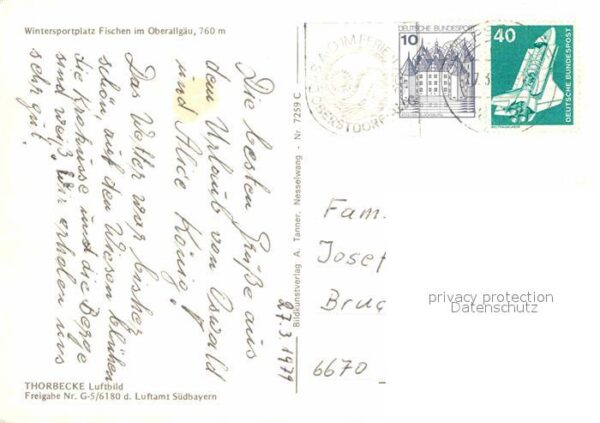 Wintersportplatz Fischen im Oberallgäu, 760 m
Die besten Grüße aus
dem Urlaub von Oswald
und Alice König!
Das Wetter war bisher
schön, auf den Wiesen blühen
die Krokusse und die Berge
sind weiß. Wir erholen uns
sehr gut.
27.3.1979
THORBECKE Luftbild
Freigabe Nr. G-5/6180 d. Luftamt Südbayern
Bildkunstverlag A. Tanner, Nesselwang - Nr. 7259 C
DEUTSCHE BUNDESPOST
10
40
DEUTSCHE BUNDESPOST
OBERSTDORF
Fam.
Josef
Bruc
6670
privacy protection
Datenschutz